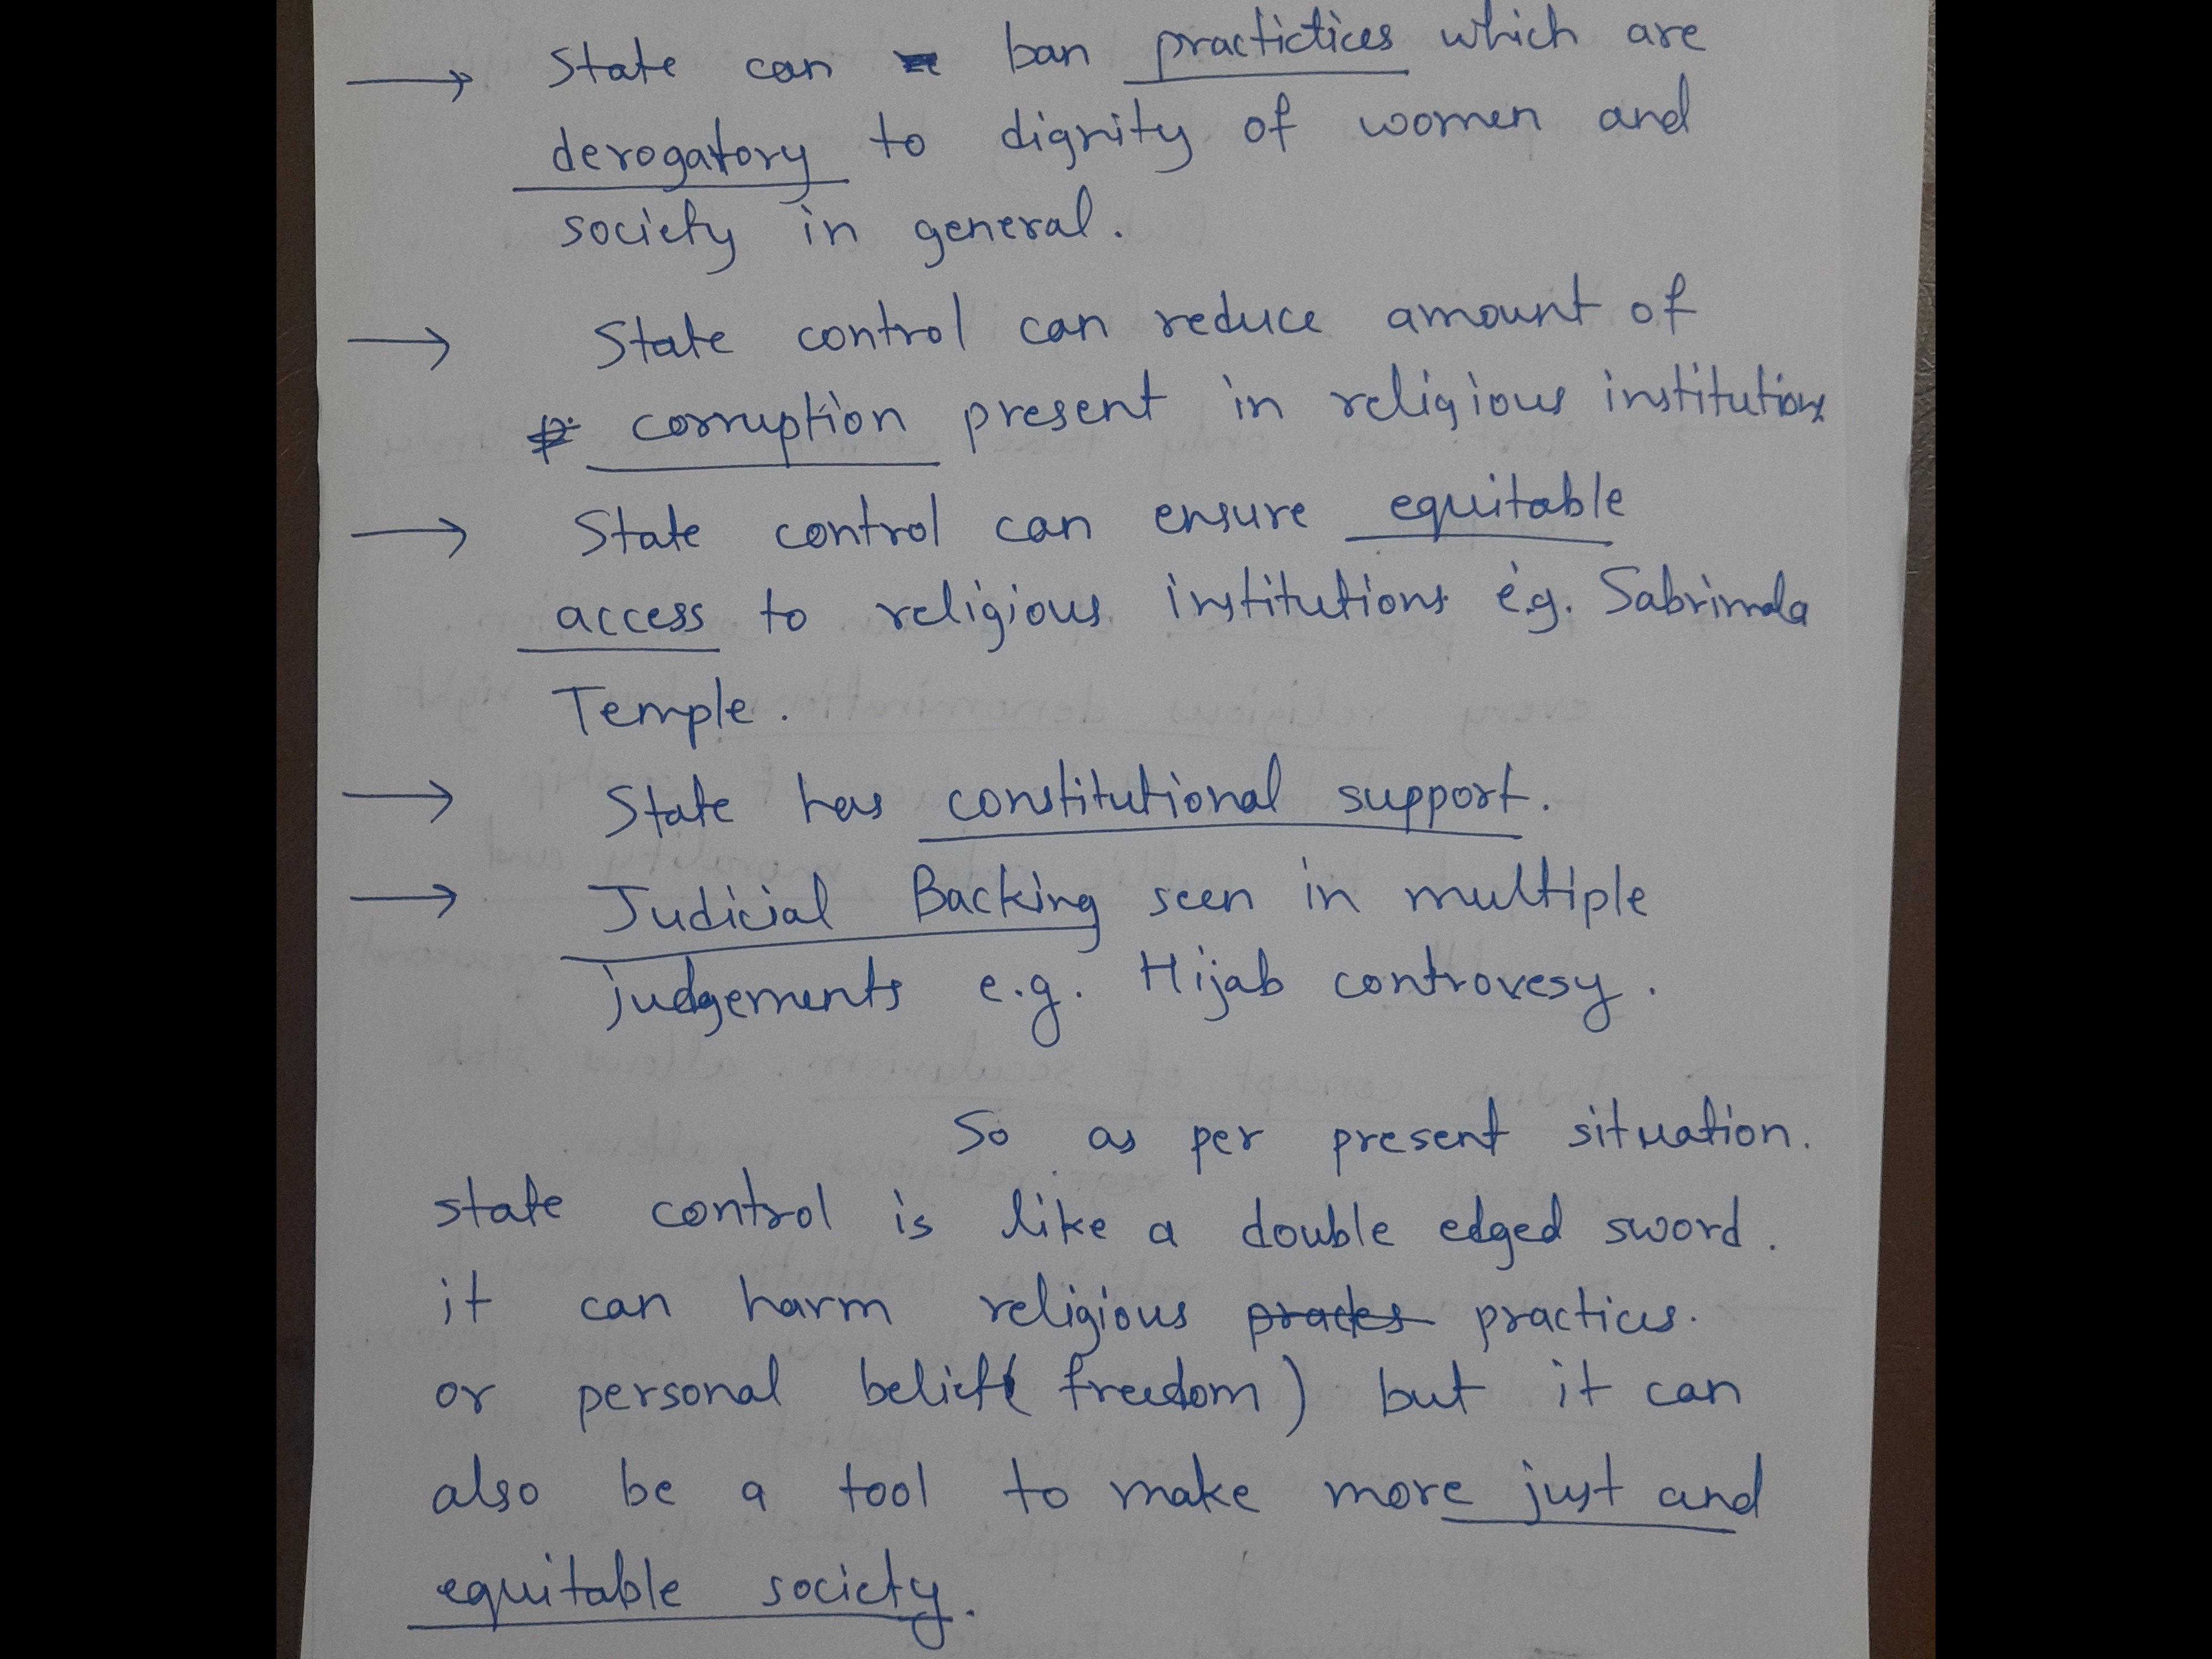 → State can ban practictices which are
derogatory to dignity of women and
society in general.
→ State control can reduce amount of
corruption present in religious institutions
→ State control can ensure equitable
access to religious institutions e.g. Sabrimala
Temple.
→ State has constitutional support.
→ Judicial Backing seen in multiple
judgements e.g. Hijab controvesy.
So as per present situation.
state control is like a double edged sword.
it can harm religious practices.
or personal belief (freedom) but it can
also be a tool to make more just and
equitable society.